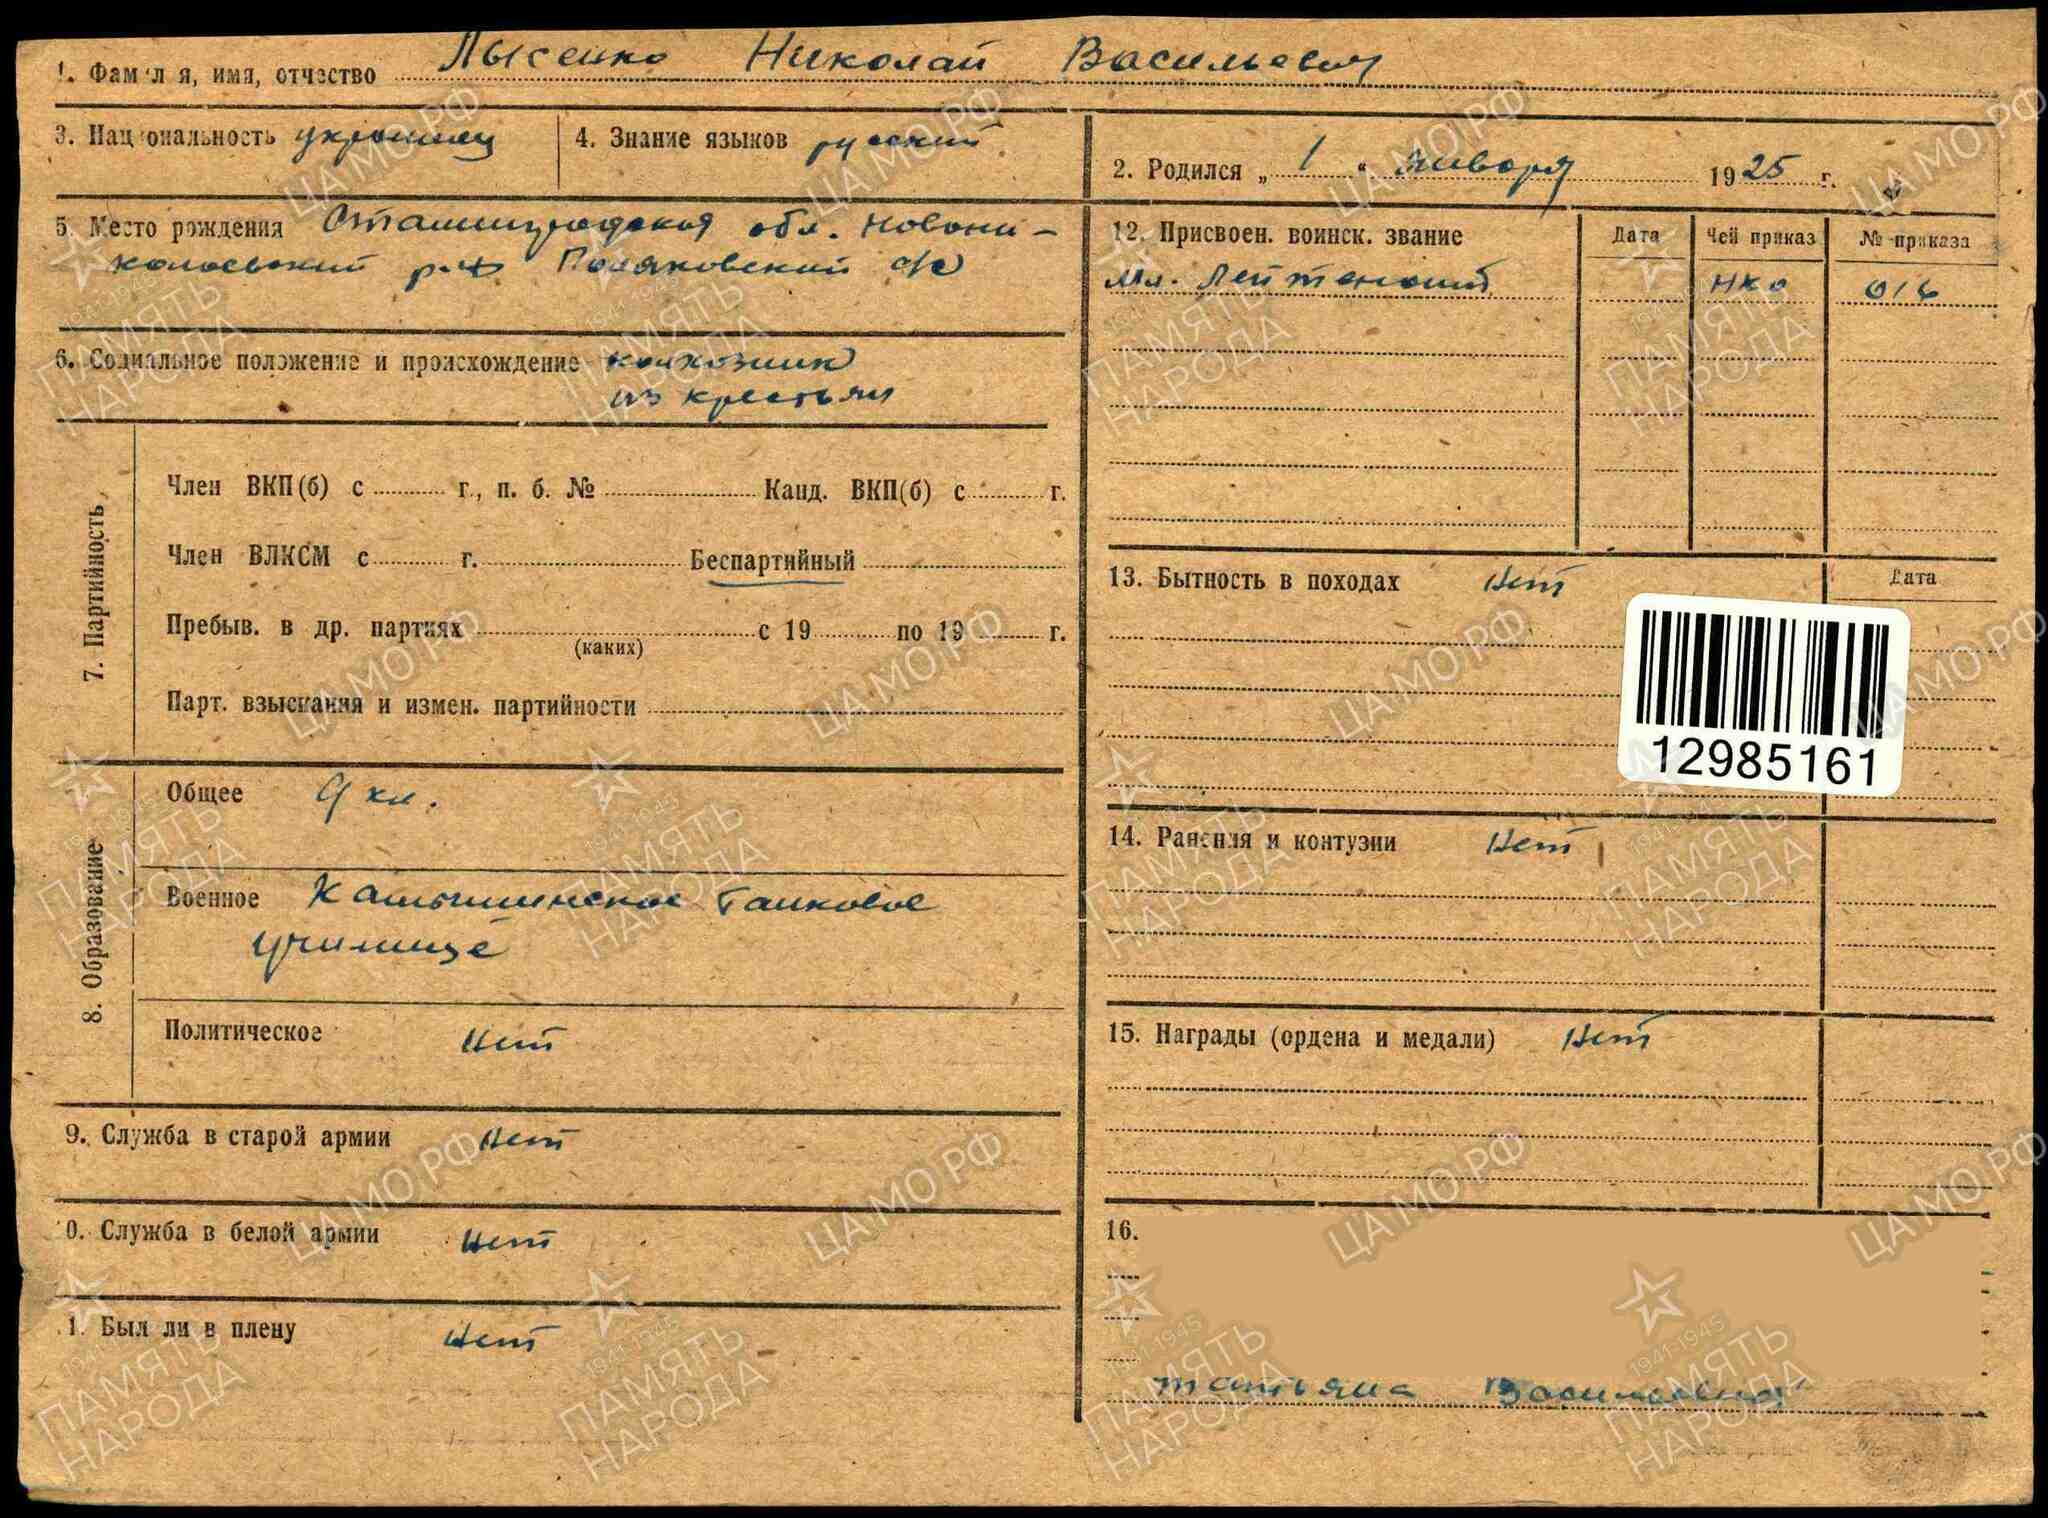 1. Фамилия, имя, отчество Лысенко Николай Васильевич
3. Национальность украинец
4. Знание языков русский
2. Родился „ 1 “ января 1925 г.
5. Место рождения Сталинградская обл. Новони-
колаевский р-н Поляковский с/с
6. Социальное положение и происхождение колхозник
из крестьян
7. Партийность
Член ВКП(б) с г., п. б. № Канд. ВКП(б) с г.
Член ВЛКСМ с г. Беспартийный
Пребыв. в др. партиях с 19 по 19 г.
(каких)
Парт. взыскания и измен. партийности
8. Образование
Общее 9 кл.
Военное Камышинское танковое
училище
Политическое нет
9. Служба в старой армии нет
0. Служба в белой армии нет
1. Был ли в плену нет
12. Присвоен. воинск. звание Дата Чей приказ № приказа
Мл. Лейтенант НКО 016
13. Бытность в походах нет Дата
12985161
14. Ранения и контузии нет
15. Награды (ордена и медали) нет
16.
Татьяна Васильевна
ЦАМО.РФ
1941-1945
ПАМЯТЬ
НАРОДА